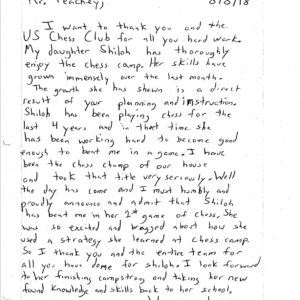 Mr. Peachey,
8/8/18
I want to thank you and the
US Chess Club for all you hard work.
My daughter Shiloh has thoroughly
enjoy the chess camp. Her skills have
grown immensely over the last month.
The growth she has shown is a direct
result of your planning and instruction.
Shiloh has been playing chess for the
last 4 years and in that time she
has been working hard to become good
enough to beat me in a game. I have
been the chess champ of our house
and took that title very seriously. Well
the day has come and I must humbly and
proudly announce and admit that Shiloh
has beat me in her 2nd game of chess. She
was so excited and bragged about how she
used a strategy she learned at chess camp.
So I thank you and the entire team for
all you have done for shiloh. I look forward
to her finishing camp strong and taking her new
found knowledge and skills back to her school.